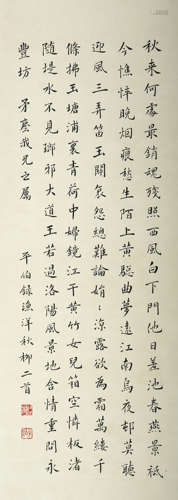 秋来何處最銷魂殘照西風白下門他日差池春燕景祗
今憔悴晚烟痕愁生陌上黃驄曲夢遠江南烏夜邨莫聽
迎風三弄笛玉關哀怨總難論 娟〻涼露欲為霜萬縷千
條拂玉塘浦裏青荷中婦鏡江干黃竹女兒箱空憐板渚
隨堤水不見瑯邪大道王若過洛陽風景地含情重問永
豐坊 矛塵我兄之屬
平伯録漁洋秋柳二首